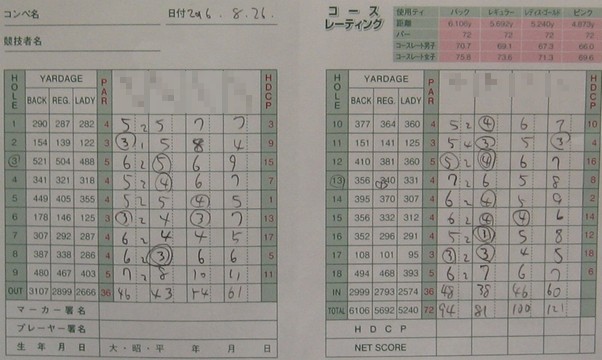 コンペ名 日付 2016. 8. 26.
競技者名
コース
レーティング
使用ティ バック レギュラー レディス・ゴールド ピンク
距離 6,106y 5,692y 5,240y 4,873y
パー 72 72 72 72
コースレート男子 70.7 69.1 67.3 66.0
コースレート女子 75.8 73.6 71.3 69.6
HOLE YARDAGE PAR HDCP
BACK REG. LADY
1 290 287 282 4 5 2 5 7 7 3
2 154 139 122 3 3 1 5 8 4 9
3 521 504 488 5 6 2 5 6 9 15
4 341 321 318 4 5 2 4 6 7 7
5 449 405 355 4 5 2 5 4 5 1
6 178 146 125 3 3 2 4 3 7 13
7 307 292 287 4 6 2 4 4 5 17
8 387 338 286 4 6 2 3 6 6 5
9 480 467 403 5 7 2 8 10 11 11
OUT 3107 2899 2666 36 46 43 54 61
マーカー署名
プレーヤー署名
生年月日 大・昭・平 年 月 日
HOLE YARDAGE PAR HDCP
BACK REG. LADY
10 377 364 360 4 5 2 4 6 7 10
11 151 141 125 3 5 4 3 5 3 4
12 410 381 360 5 2 4 6 7 16
13 356 340 331 4 7 2 6 5 8 8
14 395 370 307 4 6 2 4 5 9 2
15 356 332 312 4 6 4 4 6 14
16 352 296 291 4 5 2 5 8 12
17 108 101 95 3 3 2 3 4 5 18
18 494 468 393 5 6 2 7 6 7 6
IN 2999 2793 2574 36 48 38 46 60
TOTAL 6106 5692 5240 72 94 81 100 121
HDCP
NET SCORE